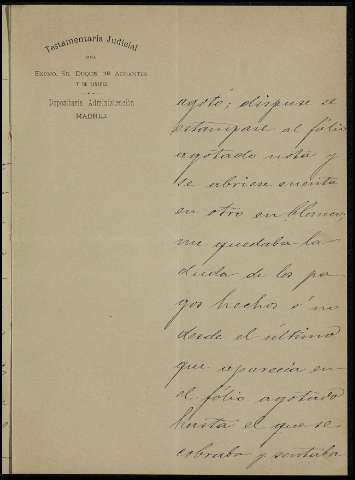 Testamentaría Judicial
DEL
EXCMO. SR. DUQUE DE ABRANTES
Y DE LINARES
Depositaría Administración
MADRID
agotó; dispuse se
estampase al fólio
agotado nota y
se abriese cuenta
en otro en blanco,
me quedaba la
duda de los pa
gos hechos ó no
desde el último
que aparecía en
el fólio agotado
hasta el que se
cobraba y sentaba